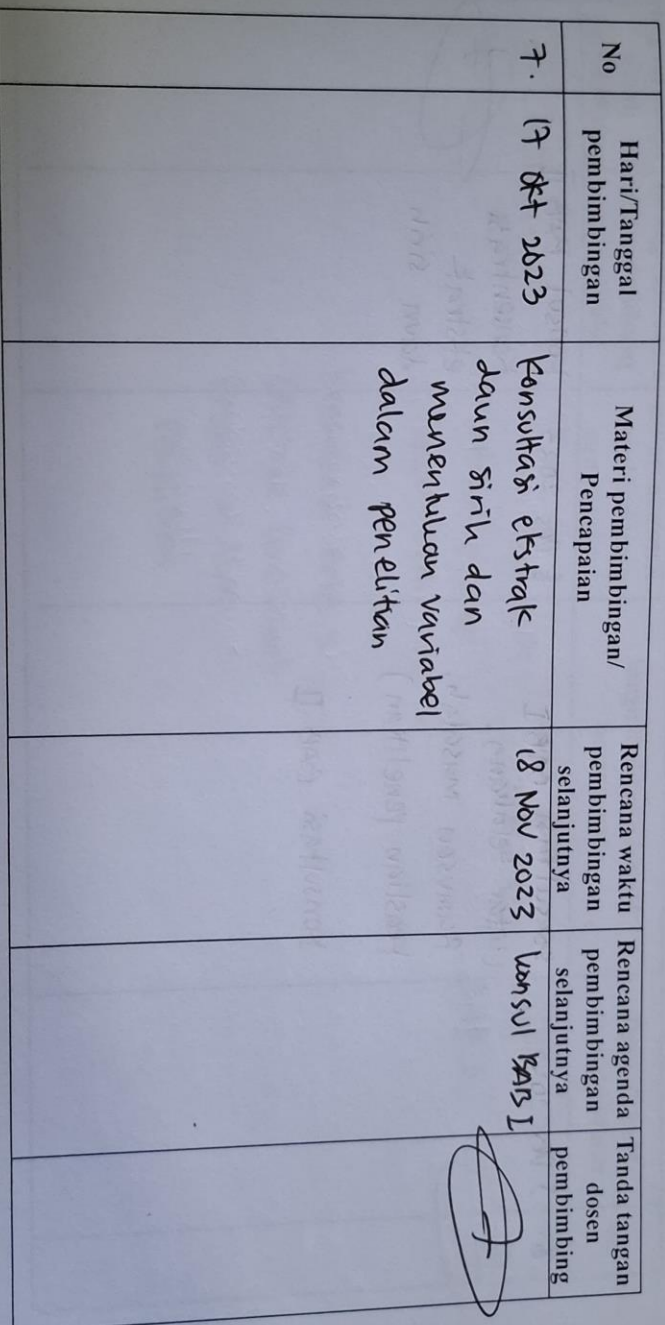 No
Hari/Tanggal
pembimbingan
Materi pembimbingan/
Pencapaian
Rencana waktu
pembimbingan
selanjutnya
Rencana agenda
pembimbingan
selanjutnya
Tanda tangan
dosen
pembimbing
7.
17 Okt 2023
Konsultasi ekstrak
daun sirih dan
menentukan variabel
dalam penelitian
18 Nov 2023
konsul BAB I